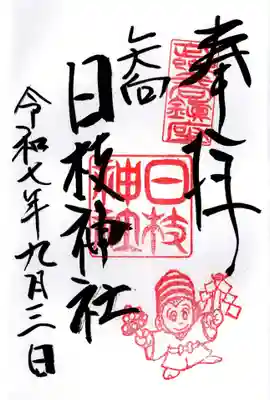 奉拝
矢向
日枝神社
令和七年九月三日
日枝
神社